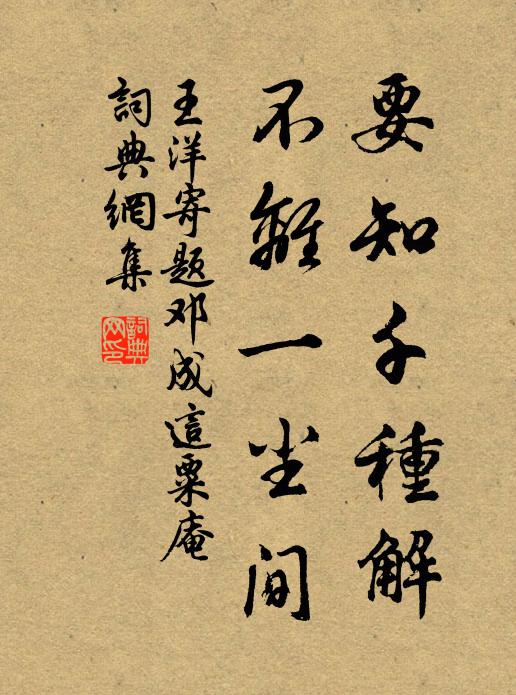 要知千種解
不離一坐间
王洋寄题邓成這粟庵
詞典網集
詞典
网印